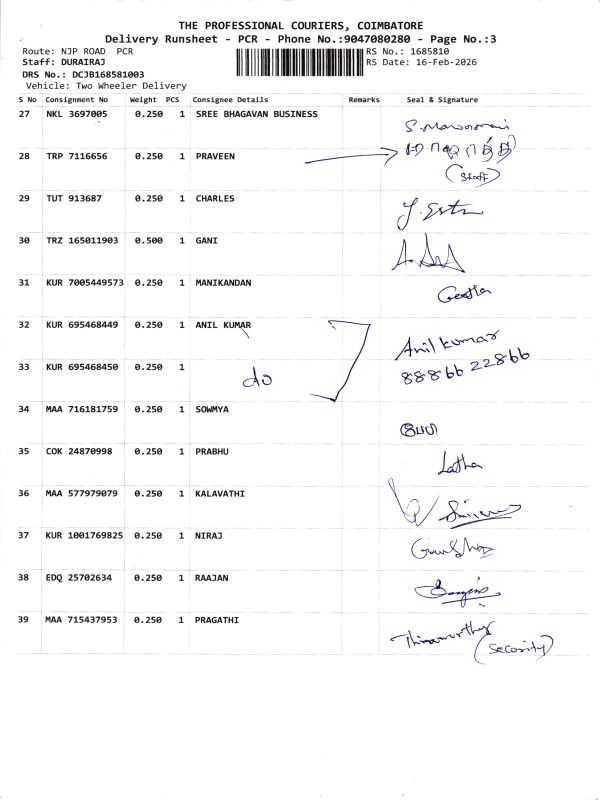 THE PROFESSIONAL COURIERS, COIMBATORE
Delivery Runsheet - PCR - Phone No.:9047080280 - Page No.:3
Route: NJP ROAD PCR RS No.: 1685810
Staff: DURAIRAJ RS Date: 16-Feb-2026
DRS No.: DCJB168581003
Vehicle: Two Wheeler Delivery
S No Consignment No Weight PCS Consignee Details Remarks Seal & Signature
27 NKL 3697005 0.250 1 SREE BHAGAVAN BUSINESS
28 TRP 7116656 0.250 1 PRAVEEN
(Staff)
29 TUT 913687 0.250 1 CHARLES
30 TRZ 165011903 0.500 1 GANI
31 KUR 7005449573 0.250 1 MANIKANDAN
Geetha
32 KUR 695468449 0.250 1 ANIL KUMAR
Anil kumar
33 KUR 695468450 0.250 1 do 88866 22866
34 MAA 716181759 0.250 1 SOWMYA
35 COK 24870998 0.250 1 PRABHU
Latha
36 MAA 577979079 0.250 1 KALAVATHI
37 KUR 1001769825 0.250 1 NIRAJ
38 EDQ 25702634 0.250 1 RAAJAN
39 MAA 715437953 0.250 1 PRAGATHI
(Secority)